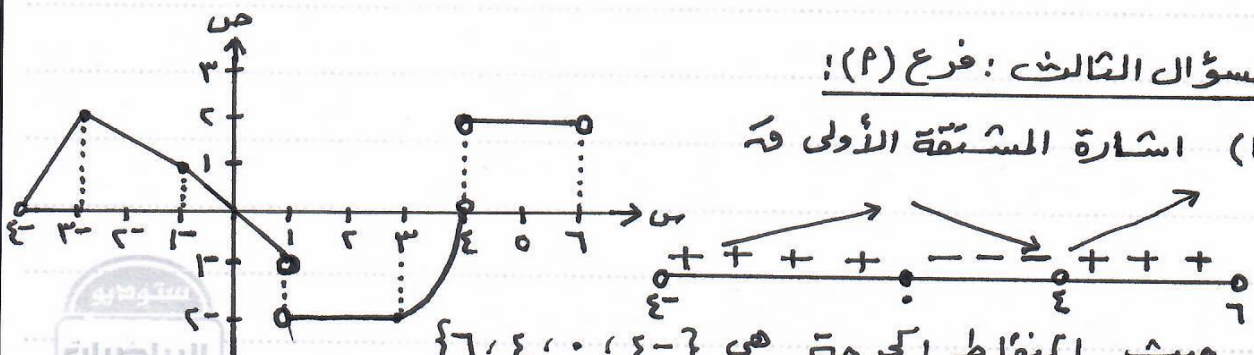 السؤال الثالث : فرع (P):
١) اشارة المشتقة الأولى قَ
ص
٣
٢
١
-٤ -٣ -٢ -١ ١ ٢ ٣ ٤ ٥ ٦ س
-١
-٢
+ + + + - - - + + +
-٤ ٠ ٤ ٦
النقاط الحرجة هي {-٤، ٠، ٤، ٦}
ستوديو
الرياضيات